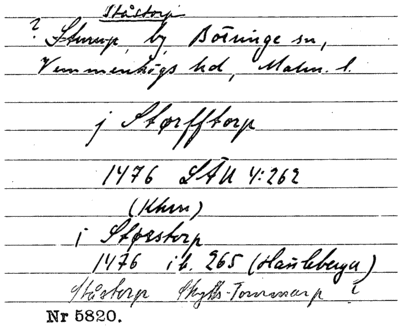 Ståstorp
? Sturup, by, Börringe sn,
Vemmenhögs hd, Malm. l.
j Størfftorp
1476 LÄU 4:262
(Khvn)
i Størstorp
1476 ib. 265 (Hanleberga)
Ståstorp Skytts-Tommarp ?
Nr 5820.